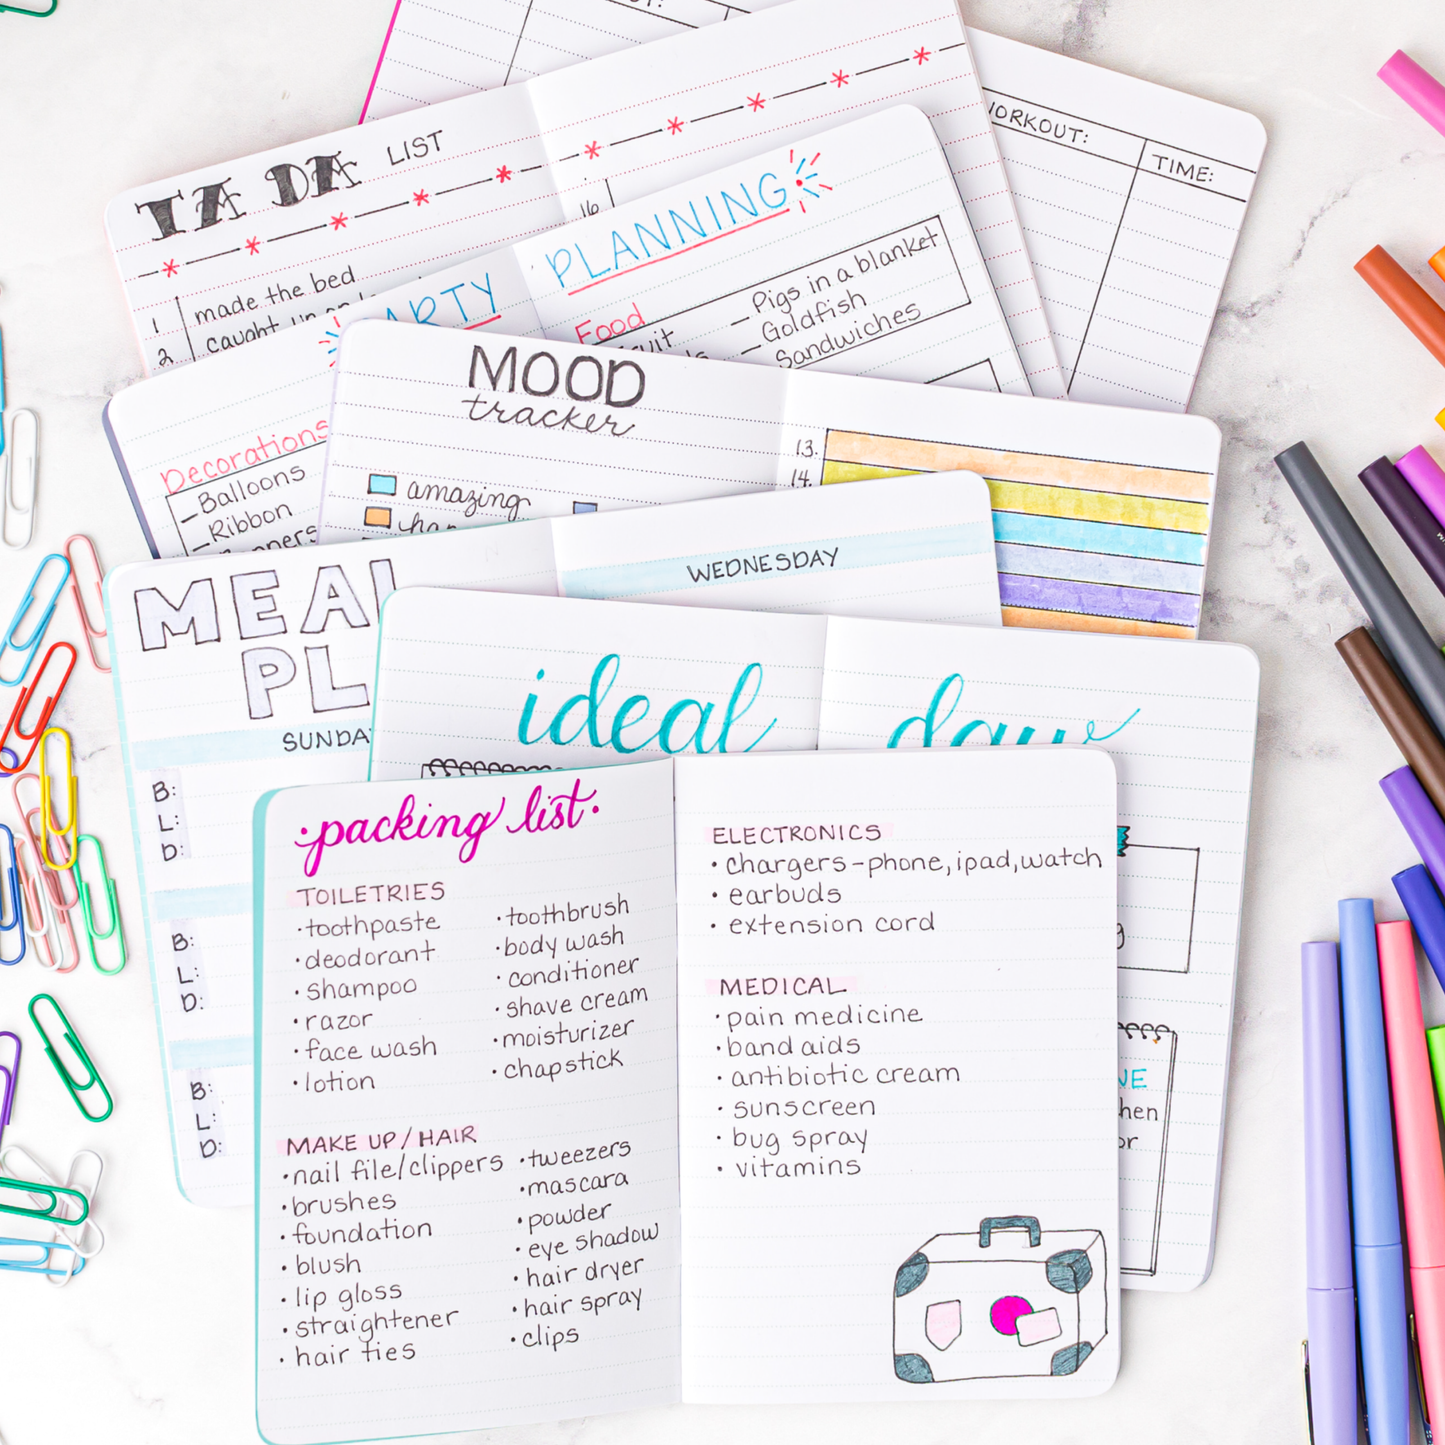 WORKOUT:
TIME:
TA DA LIST
1 made the bed
2 caught up on
16
PARTY PLANNING
Food
Pigs in a blanket
Goldfish
Sandwiches
Decorations
Balloons
Ribbon
MOOD
tracker
amazing
13.
14.
MEAL
PL
WEDNESDAY
SUNDAY
B:
L:
D:
B:
L:
D:
B:
L:
D:
ideal day
·packing list·
TOILETRIES
·toothpaste
·deodorant
·shampoo
·razor
·face wash
·lotion
·toothbrush
·body wash
·conditioner
·shave cream
·moisturizer
·chapstick
MAKE UP/HAIR
·nail file/clippers
·brushes
·foundation
·blush
·lip gloss
·straightener
·hair ties
·tweezers
·mascara
·powder
·eye shadow
·hair dryer
·hair spray
·clips
ELECTRONICS
·chargers-phone, ipad, watch
·earbuds
·extension cord
MEDICAL
·pain medicine
·band aids
·antibiotic cream
·sunscreen
·bug spray
·vitamins